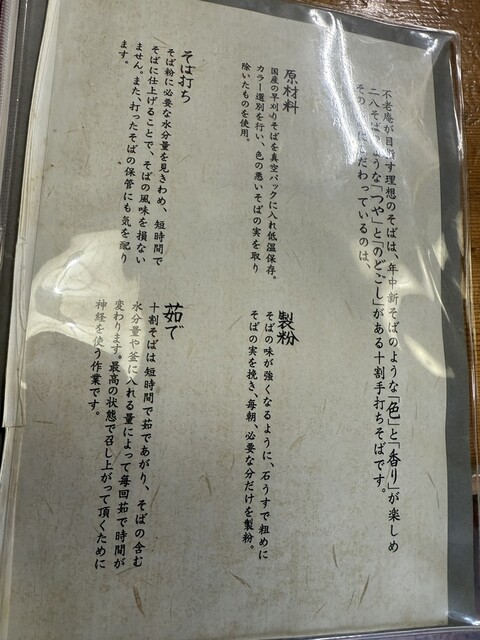 不老庵が目指す理想のそばは、年中新そばのような「色」と「香り」が楽しめ
二八そばのような「つや」と「のどごし」がある十割手打ちそばです。
そのこだわっているのは、
原材料
国産の早刈りそばを真空パックに入れ低温保存。
カラー選別を行い、色の悪いそばの実を取り
除いたものを使用。
製粉
そばの味が強くなるように、石うすで粗めに
そばの実を挽き、毎朝、必要な分だけを製粉。
そば打ち
そば粉に必要な水分量を見きわめ、短時間で
そばに仕上げることで、そばの風味を損ない
ません。また、打ったそばの保管にも気を配り
ます。
茹で
十割そばは短時間で茹であがり、そばの含む
水分量や釜に入れる量によって毎回茹で時間が
変わります。最高の状態で召し上がって頂くために
神経を使う作業です。